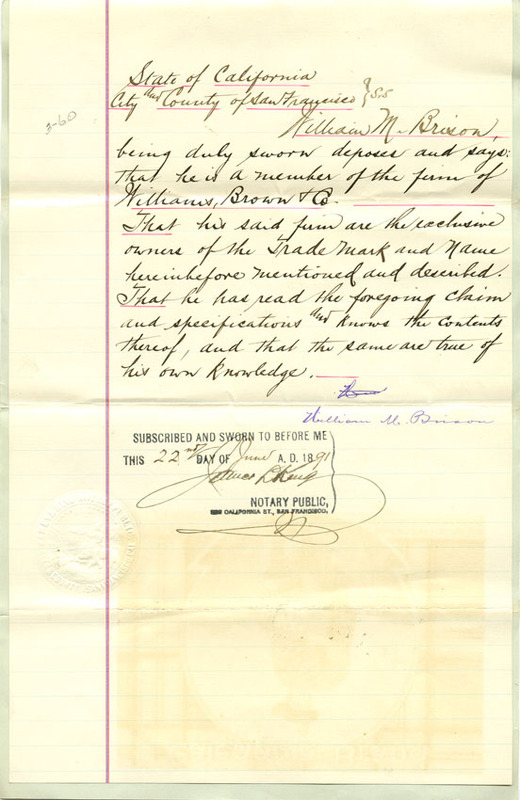 State of California
City and County of San Francisco } S.S
3-60
William M. Brison,
being duly sworn deposes and says:
that he is a member of the firm of
Williams, Brown & Co.
That his said firm are the exclusive
owners of the Trade Mark and Name
hereinbefore mentioned and described.
That he has read the foregoing claim
and specifications and knows the contents
thereof, and that the same are true of
his own knowledge.
William M. Brison
SUBSCRIBED AND SWORN TO BEFORE ME
THIS 22nd DAY OF June A. D. 1891
James L. King
NOTARY PUBLIC,
CALIFORNIA ST., SAN FRANCISCO,